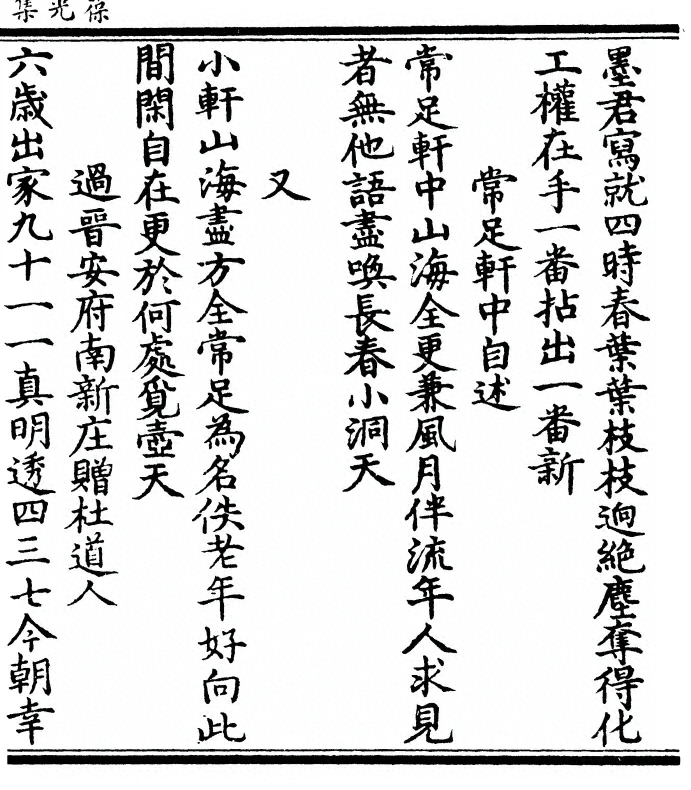 葆光集
墨君寫就四時春葉葉枝枝逈絶塵奪得化
工權在手一番拈出一番新
常足軒中自述
常足軒中山海全更兼風月伴流年人求見
者無他語盡喚長春小洞天
又
小軒山海盡方全常足為名佚老年好向此
間閑自在更於何處覓壺天
過晉安府南新庄贈杜道人
六歳出家九十一一真明透四三七今朝幸